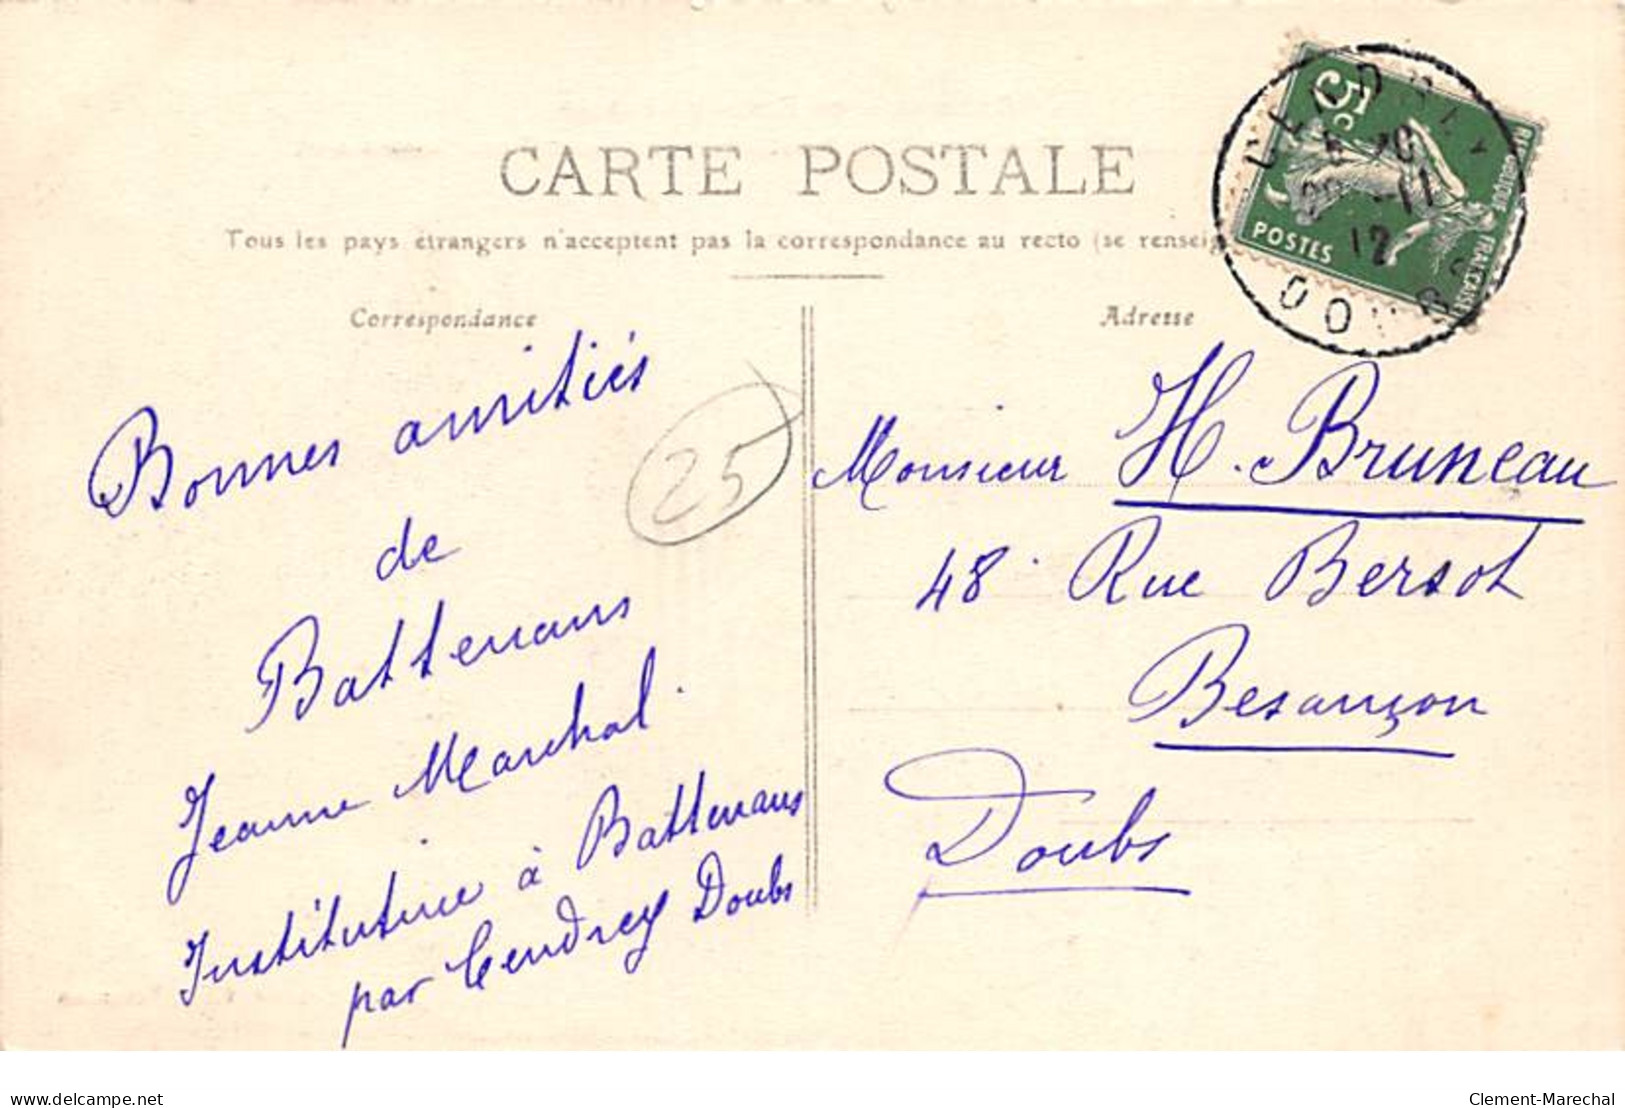 CARTE POSTALE
Tous les pays étrangers n'acceptent pas la correspondance au recto (se renseig
Correspondance
Bonnes amitiés
de
Battenans
Jeanne Marchal.
Institutrice à Battenans
par Cendrey Doubs
25
Adresse
Monsieur H. Bruneau
48 Rue Bersot
Besançon
Doubs
5c
POSTES
FRANÇAISE
CENDREY
11
12
DOUBS
delcampe.net
Clement-Marechal